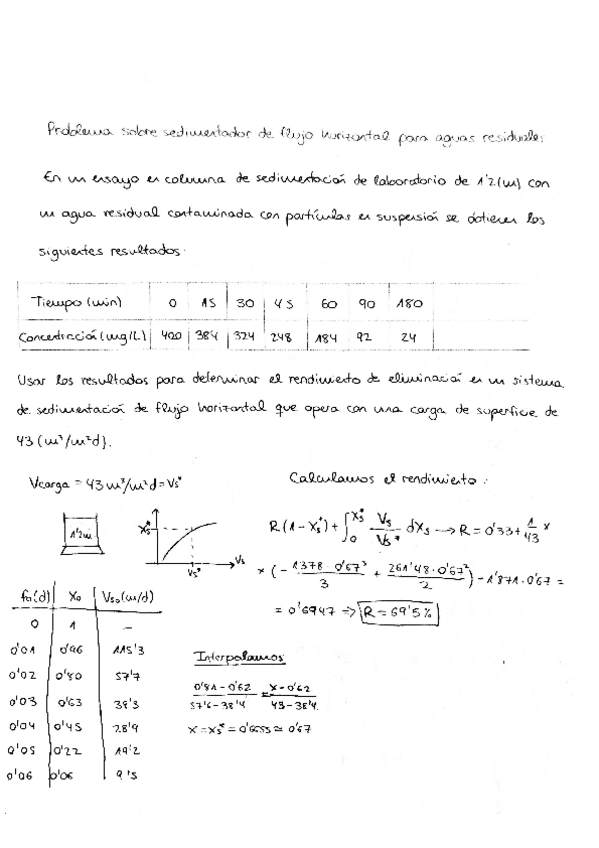 Problema sobre sedimentador de flujo horizontal para aguas residuales
En un ensayo en columna de sedimentación de laboratorio de 1'2(m) con
un agua residual contaminada con partículas en suspensión se obtienen los
siguientes resultados:
Tiempo (min) 0 15 30 45 60 90 180
Concentración (mg/L) 400 384 324 248 184 92 24
Usar los resultados para determinar el rendimiento de eliminación en un sistema
de sedimentación de flujo horizontal que opera con una carga de superficie de
43 (m³/m²d).
Vcarga = 43 m³/m²d = Vs*
Calculamos el rendimiento:
1'2m
Xs*
Vs
Vs*
R(1-Xs*) + ∫₀^Xs* Vs/Vs* dXs → R = 0'33 + 1/43 ×
× (- 1378·0'67³/3 + 261'48·0'67²/2) - 1'871·0'67 =
= 0'6947 ⇒ R = 69'5%
X₀
0 1 —
0'01 0'96 115'3
0'02 0'80 57'7
0'03 0'63 38'3
0'04 0'45 28'9
0'05 0'22 19'2
0'06 0'06 9'5
Interpolamos
0'81-0'62/57'6-38'4 = X-0'62/43-38'4
X = Xs* = 0'6655 ≃ 0'67